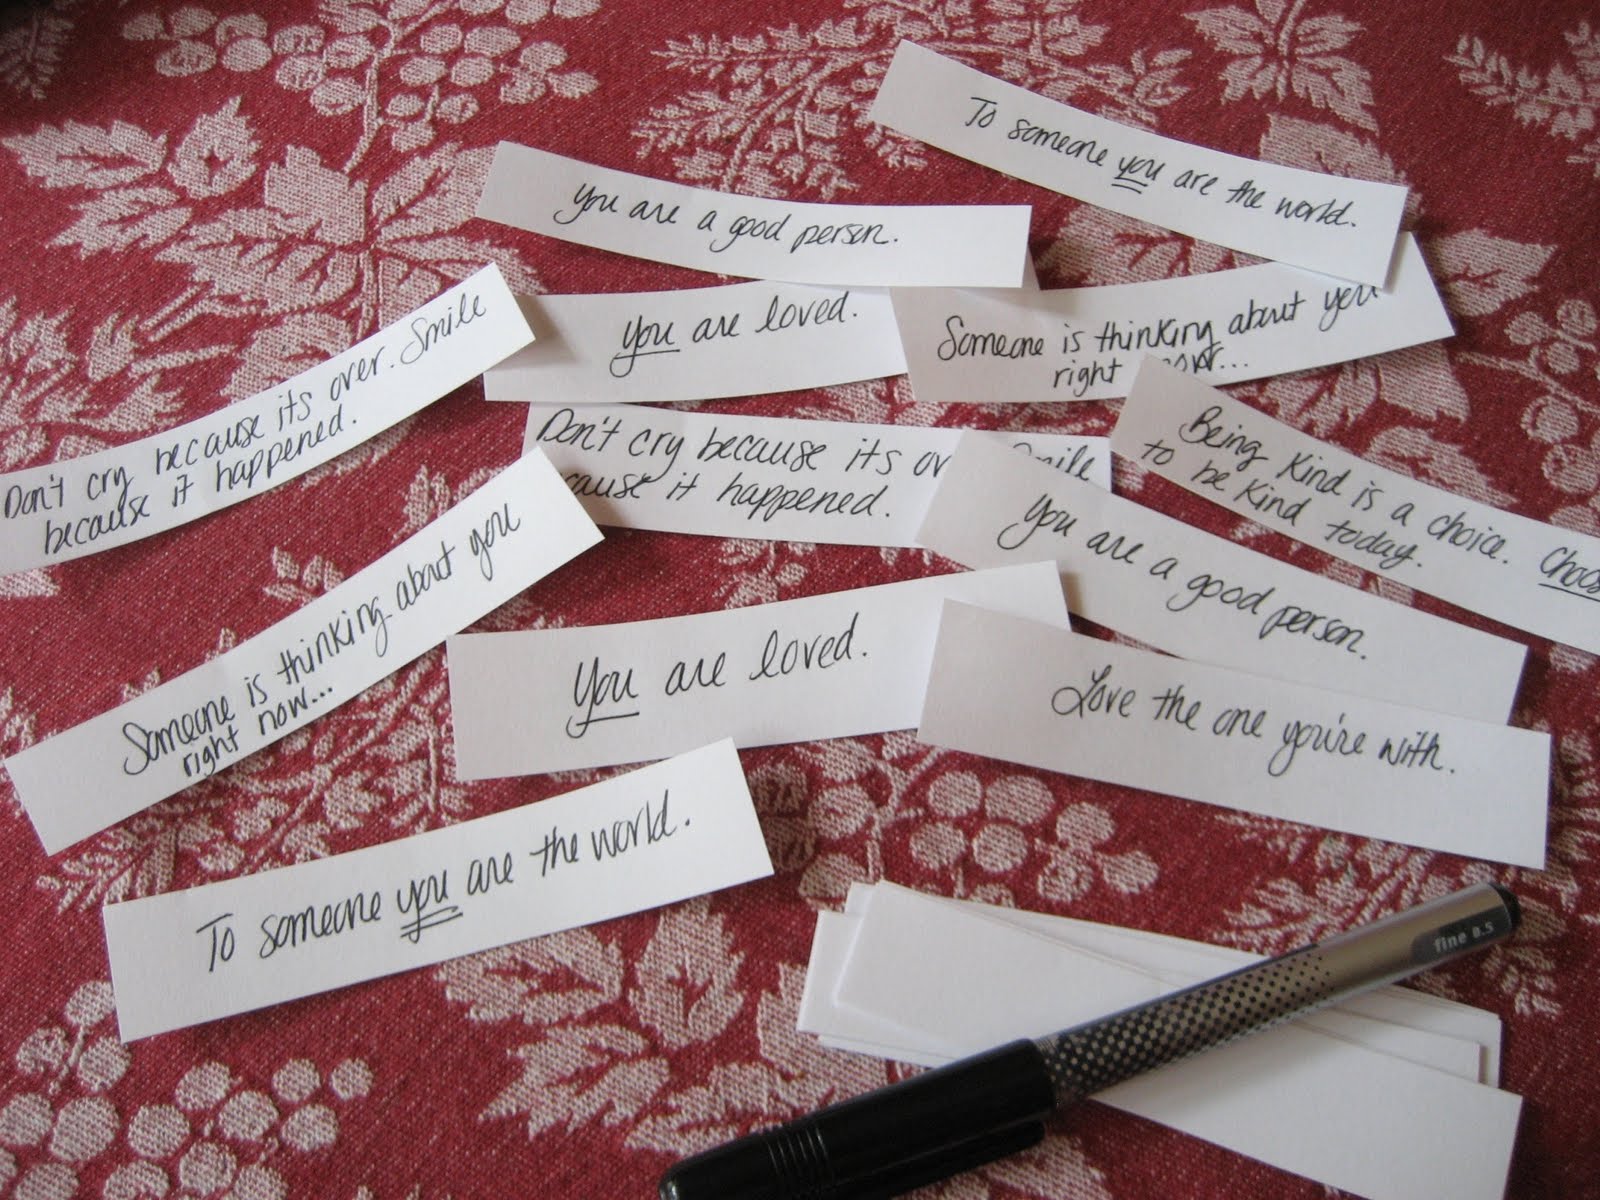 To someone you are the world.
You are a good person.
You are loved.
Someone is thinking about you
right now...
Don't cry because its over. Smile
because it happened.
Don't cry because its ov Smile
cause it happened.
Being kind is a choice. Choos
to be kind today.
You are a good person.
Someone is thinking about you
right now...
You are loved.
Love the one you're with.
To someone you are the world.
fine 0.5